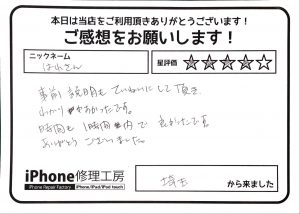 本日は当店をご利用頂きありがとうございます！
ご感想をお願いします！
ニックネーム
はれさん
星評価
事前 説明も ていねいにして 頂き
わかりやすかったです。
時間も 1時間以内で 良かったです。
ありがとうございました。
iPhone修理工房
iPhone Repair Factory
iPhone/iPad/iPod touch
埼玉
から来ました